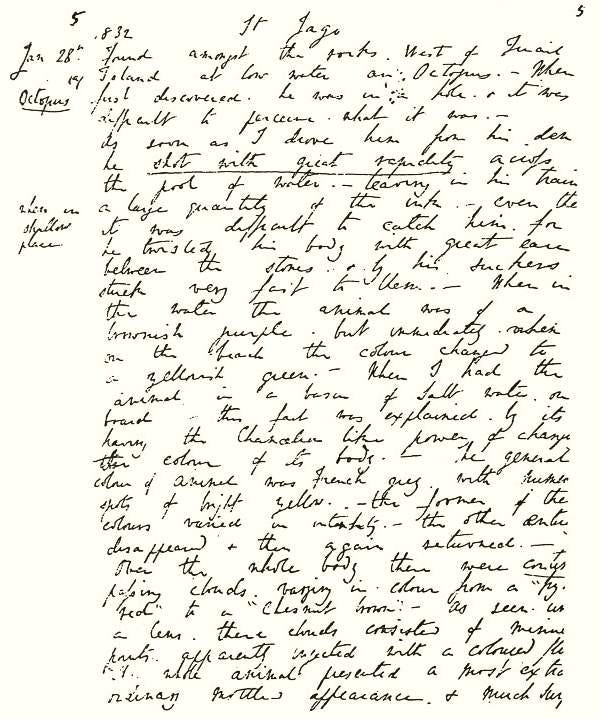 5
5
1832 St Jago
Jan 28th
Found amongst the rocks West of Quail
Island at low water an Octopus. — When
Octopus
first discovered he was in a hole & it was
difficult to perceive what it was. —
As soon as I drove him from his den
he shot with great rapidity across
the pool of water. — leaving in his train
a large quantity of the ink. — even then
when in
shallow
place
it was difficult to catch him, for
he twisted his body with great ease
between the stones & by his suckers
stuck very fast to them. — When in
the water the animal was of a
brownish purple, but immediately when
on the beach the colour changed to
a yellowish green. — When I had the
animal in a basin of salt water on
board this fact was explained by its
having the Chamælion like power of changing
the colour of its body. — The general
colour of animal was French grey with numerous
spots of bright yellow. — the former of these
colours varied in intensity. — the other entirely
disappeared & then again returned. —
Over the whole body there were
passing clouds, varying in colour from a "
red" to a "Chesnut brown". — As seen in
a lens these clouds consisted of minute
points apparently injected with a coloured
whole animal presented a most extra
ordinary mottled appearance, & much